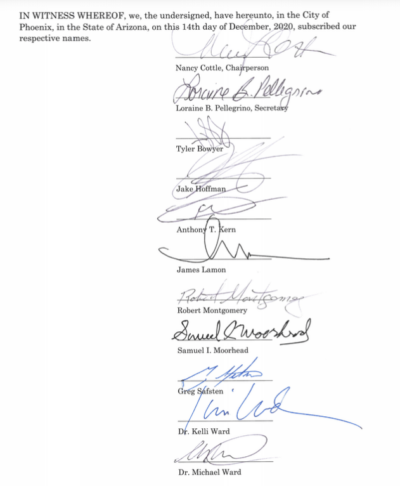 IN WITNESS WHEREOF, we, the undersigned, have hereunto, in the City of
Phoenix, in the State of Arizona, on this 14th day of December, 2020, subscribed our
respective names.
Nancy Cottle, Chairperson
Loraine B. Pellegrino
Loraine B. Pellegrino, Secretary
Tyler Bowyer
Jake Hoffman
Anthony T. Kern
James Lamon
Robert Montgomery
Robert Montgomery
Samuel I Moorhead
Samuel I. Moorhead
Greg Safsten
Dr. Kelli Ward
Dr. Michael Ward